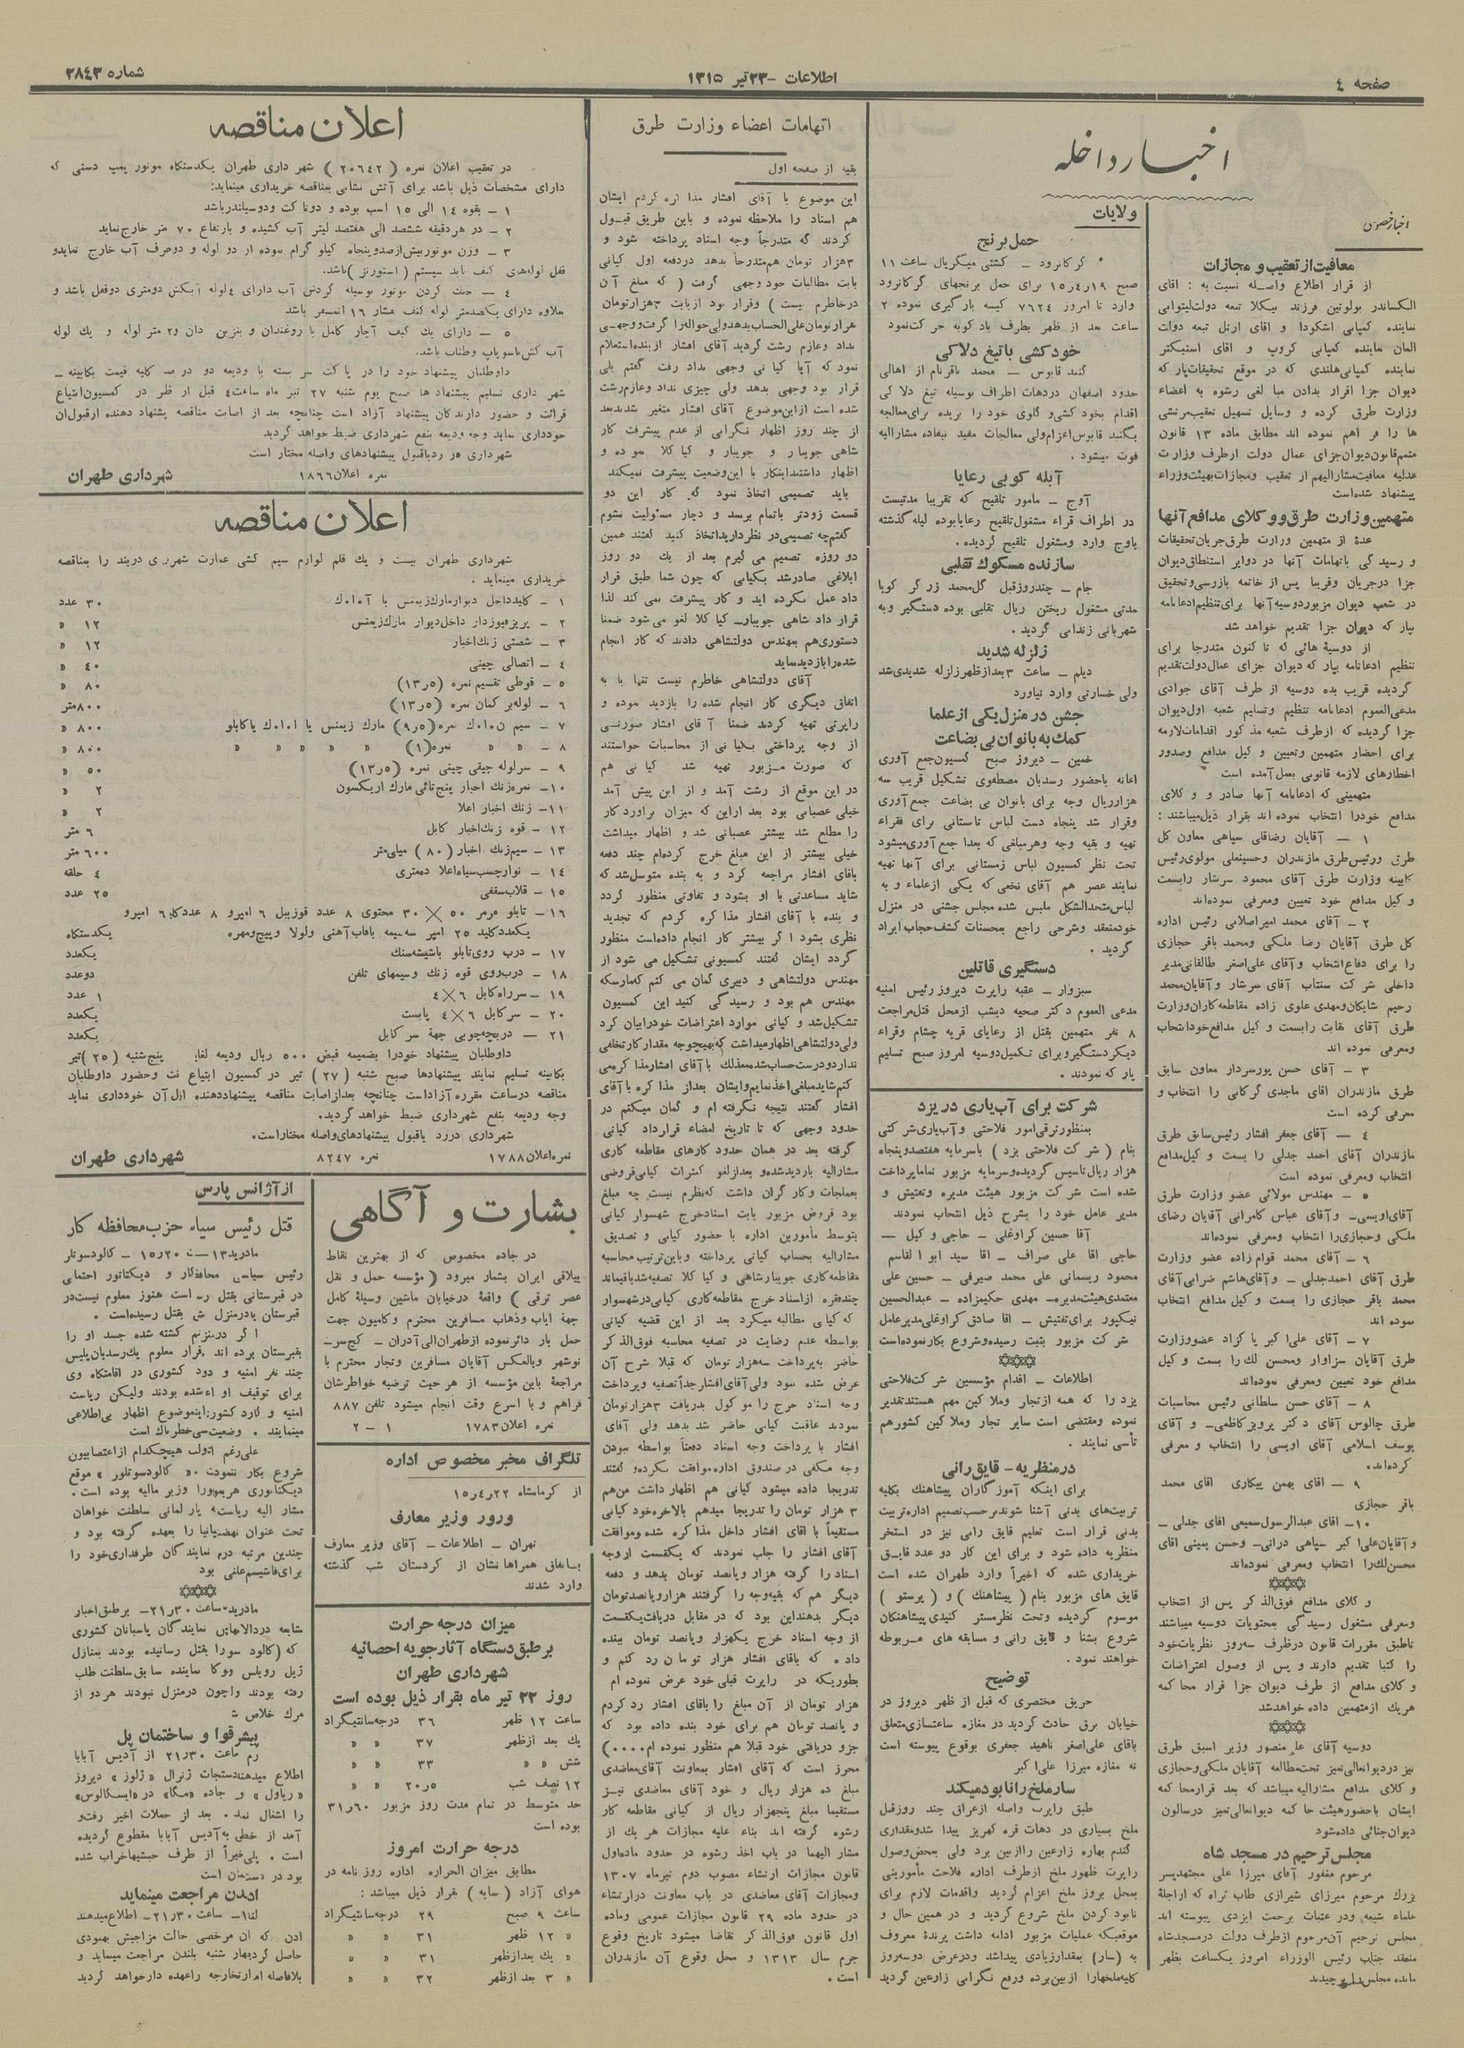 صفحه ٤
اطلاعات - ۲۳ تیر ۱۳۱۵
شماره ۲۸٤۳
اخبار داخله
اخبار خصوصی
معافیت از تعقیب و مجازات
از قرار اطلاع واصله نسبت به : اقای
الکساندر بولوتین فرزند نیکلا تبعه دولت لیتوانی
نماینده کمپانی اشکودا و اقای ارنل تبعه دولت
المان نماینده کمپانی کروپ و اقای استیکتر
نماینده کمپانی هلندی که در موقع تحقیقات پار که
دیوان جزا اقرار بدادن مبا لغی رشوه به اعضاء
وزارت طرق کرده و وسایل تسهیل تعقیب مرتشی
ها را فر اهم نموده اند مطابق ماده ۱۳ قانون
متمم قانون دیوان جزای عمال دولت از طرف وزارت
عدلیه معافیت مشارالیهم از تعقیب و مجازات بهیئت وزراء
پیشنهاد شده است
متهمین وزارت طرق و وکلای مدافع آنها
عدۀ از متهمین وزارت طرق جریان تحقیقات
و رسید گی باتهامات آنها در دوایر استنطاق دیوان
جزا در جریان و قریبا پس از خاتمه بازرسی و تحقیق
در شعب دیوان مزبور دوسیه آنها برای تنظیم ادعانامه
بپار که دیوان جزا تقدیم خواهد شد
از دوسیه هائی که تا کنون متدرجا برای
تنظیم ادعانامه بپار که دیوان جزای عمال دولت تقدیم
گردیده قریب بده دوسیه از طرف آقای جوادی
مدعی العموم ادعانامه تنظیم و تسلیم شعبه اول دیوان
جزا گردیده که از طرف شعبه مذ کور اقدامات لازمه
برای احضار متهمین و تعیین و کیل مدافع و صدور
اخطارهای لازمه قانونی بعمل آمده است
متهمینی که ادعانامه آنها صادر و و کلای
مدافع خود را انتخاب نموده اند بقرار ذیل میباشند :
۱ - آقایان رضاقلی سپاهی معاون کل
طرق و رئیس طرق مازندران و حسینعلی مولوی رئیس
کابینه وزارت طرق آقای محمود سرشار را بسمت
و کیل مدافع خود تعیین و معرفی نموده اند
۲ - آقای محمد امیر اصلانی رئیس اداره
کل طرق آقایان رضا ملکی و محمد باقر حجازی
را برای دفاع انتخاب و آقای علی اصغر طالقانی مدیر
داخلی شر کت سنتاب آقای سرشار و آقایان محمد
رحیم شایکان و مهدی علوی زاده مقاطعه کاران وزارت
طرق آقای نقابت را بسمت و کیل مدافع خود انتخاب
و معرفی نموده اند
۳ - آقای حسن پورسردار معاون سابق
طرق مازندران اقای ماجدی گرکانی را انتخاب و
معرفی کرده است
٤ - آقای جعفر افشار رئیس سابق طرق
مازندران آقای احمد جدلی را بسمت و کیل مدافع
انتخاب و معرفی نموده است
۵ - مهندس مولائی عضو وزارت طرق
آقای اویسی و آقای عباس کامرانی آقایان رضای
ملکی و حجازی را انتخاب و معرفی نموده اند
٦ - آقای محمد قوام زاده عضو وزارت
طرق آقای احمد جدلی - و آقای هاشم ضرابی آقای
محمد باقر حجازی را بسمت و کیل مدافع انتخاب
نموده اند
۷ - آقای علی اکبر با کزاد عضو وزارت
طرق آقایان سزاوار و محسن لك را بسمت و کیل
مدافع خود تعیین و معرفی نموده اند
۸ - آقای حسن سلطانی رئیس محاسبات
طرق چالوس آقای د کتر پرویز کاظمی - و آقای
یوسف اسلامی آقای اویسی را انتخاب و معرفی
کرده اند .
۹ - اقای بهمن بیکاری اقای محمد
باقر حجازی
۱۰ - اقای عبدالرسول سمیعی اقای جدلی -
و آقایان علی اکبر سپاهی درانی - و حسن یمینی اقای
محسن لك را انتخاب و معرفی نموده اند
و کلای مدافع فوق الذ کر پس از انتخاب
و معرفی مشغول رسید گی بمحتویات دوسیه میباشند
تا طبق مقررات قانون در ظرف سه روز نظریات خود
را کتبا تقدیم دارند و پس از وصول اعتراضات
و کلای مدافع از طرف دیوان جزا قرار محا کمه
هریك از متهمین داده خواهد شد
دوسیه آقای علی منصور وزیر اسبق طرق
نیز در دیوانعالی تمیز تحت مطالعه آقایان ملکی و حجازی
و کلای مدافع مشارالیه میباشد که بعد قرار محا کمه
ایشان با حضور هیئت حا کمه دیوانعالی تمیز در سالون
دیوان جنائی داده شود
مجلس ترحیم در مسجد شاه
مرحوم مغفور آقای میرزا علی مجتهد پسر
بزرك مرحوم میرزای شیرازی طاب ثراه که از اجلۀ
علماء شیعه و در عتبات برحمت ایزدی پیوسته اند
مجلس ترحیم آن مرحوم از طرف دولت در مسجد شاه
منعقد جناب رئیس الوزراء امروز یکساعت بظهر
مانده مجلس را بر چیدند
ولایات
حمل برنج
کر کانرود - کشتی میکریال ساعت ۱۱
صبح ۱۹ر٤ر۱۵ برای حمل برنجهای گرکانرود
وارد تا امروز ۷٦۲٤ کیسه بار گیری نموده ۲
ساعت بعد از ظهر بطرف باد کوبه حر کت نمود
خودکشی با تیغ دلاکی
گنبد قابوس - محمد باقر نام از اهالی
حدود اصفهان در دهات اطراف بوسیله تیغ دلا کی
اقدام بخود کشی و گلوی خود را بریده برای معالجه
بگنبد قابوس اعزام ولی معالجات مفید نیفتاده مشارالیه
فوت میشود .
آبله کوبی رعایا
آوج - مامور تلقیح که تقریبا مدتیست
در اطراف قراء مشغول تلقیح رعایا بوده لیله گذشته
باوج وارد و مشغول تلقیح گردیده .
سازنده مسکوك تقلبی
جام - چند روز قبل گل محمد زر گر گویا
مدتی مشغول ریختن ریال تقلبی بوده دستگیر و به
شهربانی زندانی گردید .
زلزله شدید
دیلم - ساعت ۳ بعد از ظهر زلزله شدیدی شد
ولی خسارتی وارد نیاورد
جشن در منزل یکی از علما
کمك به بانوان بی بضاعت
خمین - دیروز صبح کمسیون جمع آوری
اعانه با حضور رسدبان مصطفوی تشکیل قریب سه
هزار ریال وجه برای بانوان بی بضاعت جمع آوری
و قرار شد پنجاه دست لباس تابستانی برای فقراء
تهیه و بقیه وجه و هر مبلغی که بعدا جمع آوری میشود
تحت نظر کمسیون لباس زمستانی برای آنها تهیه
نمایند عصر هم آقای نخعی که یکی از علماء و به
لباس متحد الشکل ملبس شده مجلس جشنی در منزل
خود منعقد و شرحی راجع بمحسنات کشف حجاب ایراد
گردید .
دستگیری قاتلین
سبزوار - عقبه راپرت دیروز رئیس امنیه
مدعی العموم د کتر صحیه دیشب از محل قتل مراجعت
۸ نفر متهمین بقتل از رعایای قریه چشام و قراء
دیگر دستگیر و برای تکمیل دوسیه امروز صبح تسلیم
پار که نمودند .
شرکت برای آب یاری در یزد
بمنظور ترقی امور فلاحتی و آب یاری شر کتی
بنام ( شر کت فلاحتی یزد ) با سرمایه هفتصد و پنجاه
هزار ریال تاسیس گردیده و سرمایه مزبور تماما پرداخت
شده است شر کت مزبور هیئت مدیره و تفتیش و
مدیر عامل خود را بشرح ذیل انتخاب نمودند
آقا حسین کراوغلی - حاجی و کیل -
حاجی اقا علی صراف - اقا سید ابو ا لقاسم
محمود ریسمانی علی محمد صیرفی - حسین علی
معتمدی هیئت مدیره - مهدی حکیم زاده - عبدالحسین
نیکپور برای تفتیش - اقا صادق کراوغلی مدیر عامل
شر کت مزبور بثبت رسیده و شروع بکار نموده است
اطلاعات - اقدام مؤسسین شر کت فلاحتی
یزد را که همه از تجار و ملا کین مهم هستند تقدیر
نموده و مقتضی است سایر تجار و ملا کین کشور هم
تأسی نمایند .
در منظریه - قایق رانی
برای اینکه آموز گاران پیشاهنك بکلیه
تربیت های بدنی آشنا شوند بر حسب تصمیم اداره تربیت
بدنی قرار است تعلیم قایق رامی نیز در استخر
منظریه داده شود و برای این کار دو عدد قایق
خریداری شده که اخیراً وارد طهران شده است
قایق های مزبور بنام ( پیشاهنك ) و ( پرستو )
موسوم گردیده و تحت نظر مستر کنیدی پیشاهنکان
شروع بشنا و قایق رانی و مسابقه های مربوطه
خواهند نمود .
توضیح
حریق مختصری که قبل از ظهر دیروز در
خیابان برق حادث گردید در مغازه ساعتسازی متعلق
باقای علی اصغر ناهید جعفری بوقوع پیوسته است
نه مغازه میرزا علی ا کبر
سار ملخ را نابود میکند
طبق راپرت واصله از عراق چند روز قبل
ملخ بسیاری در دهات قره کهریز پیدا شد و مقداری
گندم بهاره زارعین را از بین برد ولی بمحض وصول
راپرت ظهور ملخ از طرف اداره فلاحت مأمورینی
بمحل بروز ملخ اعزام گردید و اقدمات لازم برای
نابود کردن ملخ شروع گردید و در همین حال و
موقعیکه عملیات مزبور ادامه داشت پرندۀ معروف
به (سار) بمقدار زیادی پیدا شد و در عرض دو سه روز
کلیه ملخها را از بین برده و رفع نگرانی زارعین گردید
اتهامات اعضاء وزارت طرق
بقیه از صفحه اول
این موضوع با آقای افشار مذا کره کردم ایشان
هم اسناد را ملاحظه نموده و باین طریق قبول
کردند که متدرجاً وجه اسناد پرداخته شود و
۳هزار تومان هم متدرجاً بدهد در دفعه اول کیانی
بابت مطالبات خود وجهی گرفت ( که مبلغ آن
در خاطرم نیست ) و قرار بود از بابت ۳هزار تومان
هزار تومان علی الحساب بدهد ولی حواله را گرفت و وجهی
نداد و عازم رشت گردید آقای افشار از بنده استعلام
نمود که آیا کیا نی وجهی بداد رفت گفتم بلی
قرار بود وجهی بدهد ولی چیزی نداد و عازم رشت
شده است از این موضوع آقای افشار متغیر شدند بعد
از چند روز اظهار نگرانی از عدم پیشرفت کار
شاهی جویبار و جویبار و کیا کلا نموده و
اظهار داشتند اینکار با این وضعیت پیشرفت نمیکند
باید تصمیمی اتخاذ نمود که کار این دو
قسمت زودتر باتمام برسد و دچار مسئولیت نشوم
گفتم چه تصمیمی در نظر دارید اتخاذ کنید گفتند همین
دو روزه تصمیم می گیرم بعد از یك دو روز
ابلاغی صادر شد بکیانی که چون شما طبق قرار
داد عمل نکرده اید و کار پیشرفت نمی کند لذا
قرار داد شاهی جویبار - کیا کلا لغو می شود ضمنا
دستوری هم بمهندس دولتشاهی دادند که کار انجام
شده را بازدید نماید
آقای دولتشاهی خاطرم نیست تنها یا به
اتفاق دیگری کار انجام شده را بازدید نموده و
راپرتی تهیه کردند ضمنا آقای افشار صورتی
از وجه پرداختی بکیا نی از محاسبات خواستند
که صورت مزبور تهیه شد کیا نی هم
در این موقع از رشت آمد و از این پیش آمد
خیلی عصبانی بود بعد از این که میزان براورد کار
را مطلع شد بیشتر عصبانی شد و اظهار میداشت
خیلی بیشتر از این مبلغ خرج کرده ام چند دفعه
باقای افشار مراجعه کرد و به بنده متوسل شد که
شاید مساعدتی با او بشود و تفاوتی منظور گردد
و بنده با آقای افشار مذا کره کردم که تجدید
نظری بشود ا گر بیشتر کار انجام داده است منظور
گردد ایشان گفتند کمسیونی تشکیل می شود از
مهندس دولتشاهی و دبیری گمان می کنم که مارسکه
مهندس هم بود و رسید گی کنید این کمسیون
تشکیل شد و کیانی موارد اعتراضات خود را بیان کرد
ولی دولتشاهی اظهار میداشت که بهیچوجه مقدار کار تخلفی
ندارد و درست حساب شده معذلك با آقای افشار مذا کره می
کنم شاید مبلغی اخذ نمایم و ایشان بعد از مذا کره با آقای
افشار گفتند نتیجه نگرفته ام و گمان میکنم در
حدود وجهی که تا تاریخ امضاء قرارداد کیانی
گرفته بعد در همان حدود کارهای مقاطعه کاری
مشارالیه بازدید شده و بعد از لغو کنترات کیانی قروضی
بعملجات و کار گران داشت که نظرم نیست چه مبلغ
بود قروض مزبور بابت اسناد خرج شهسوار کیانی
بتوسط مأمورین اداره با حضور کیانی و تصدیق
مشارالیه بحساب کیانی پرداخته و باین ترتیب محاسبه
مقاطعه کاری جویبار شاهی و کیا کلا تصفیه شد باقیماند
چند فقره از اسناد خرج مقاطعه کاری کیانی در شهسوار
که کیانی مطالبه میکرد بعد از این قضیه کیانی
بواسطه عدم رضایت در تصفیه محاسبه فوق الذ کر
حاضر به پرداخت سه هزار تومان که قبلا شرح آن
عرض شده نبود ولی آقای افشار جداً تصفیه و پرداخت
وجه اسناد خرج را مو کول بدریافت ۳هزار تومان
نمودند عاقبت کیانی حاضر شد بدهد ولی آقای
افشار با پرداخت وجه اسناد دفعتاً بواسطه نبودن
وجه مکفی در صندوق اداره موافقت نکرده و گفتند
تدریجا داده میشود کیانی هم اظهار داشت من هم
۳ هزار تومان را تدریجا میدهم بالاخره خود کیانی
مستقیماً با اقای افشار داخل مذا کره شده و موافقت
آقای افشار را جلب نمودند که یکقسمت از وجه
اسناد را گرفته هزار و پانصد تومان بدهد و دفعه
دیگر هم که بقیه وجه را گرفتند هزار و پانصد تومان
دیگر بدهند این بود که در مقابل دریافت یکقسمت
از وجه اسناد خرج یکهزار و پانصد تومان ببنده
داد . که باقای افشار هزار تومان رد کنم و
بطوریکه در راپرت قبلی خود عرض نموده ام
هزار تومان از آن مبلغ را باقای افشار رد کردم
و پانصد تومان هم برای خود بنده داده بود که
جزو دریافتی خود قبلا هم منظور نموده ام ....)
محرز است که آقای افشار بمعاونت آقای معاضدی
مبلغ ده هزار ریال و خود آقای معاضدی نیز
مستقیما مبلغ پنجهزار ریال از کیانی مقاطعه کار
رشوه گرفته اند بناء علیه مجازات هر یك از
مشار الیهما در باب اخذ رشوه در حدود ماده اول
قانون مجازات ارتشاء مصوب دوم تیر ماه ۱۳۰۷
و مجازات آقای معاضدی در باب معاونت در ارتشاء
در حدود ماده ۲۹ قانون مجازات عمومی و ماده
اول قانون فوق الذ کر تقاضا میشود تاریخ وقوع
جرم سال ۱۳۱۳ و محل وقوع آن مازندران
است .
اعلان مناقصه
در تعقیب اعلان نمره ( ۲۰٦٤۲ ) شهر داری طهران یکدستگاه موتور پمپ دستی که
دارای مشخصات ذیل باشد برای آتش نشانی بمناقصه خریداری مینماید:
۱ - بقوه ۱٤ الی ۱۵ اسب بوده و دوتا کت و دوسیلندر باشد
۲ - در هر دقیقه ششصد الی هفتصد لیتر آب کشیده و بارتفاع ۷۰ متر خارج نماید
۳ - وزن موتور بیش از صد و پنجاه کیلو گرام نبوده از دو لوله و دو طرف آب خارج نماید و
قفل لوله های کنف باید سیستم ( استورتز ) باشد.
٤ - جهت کردن موتور بوسیله گردش آب دارای ٤ لوله آبکش دومتری دو قفل باشد و
بعلاوه دارای یکصد متر لوله کنف فشار ۱٦ اتمسفر باشد
۵ - دارای یك کیف آچار کامل با روغندان و بنزین دان و ۲۵ متر لوله و یك لوله
آب کش با سوپاپ و طناب باشد.
داوطلبان پیشنهاد خود را در پا کت سر بسته با ودیعه دو در صد کلیه قیمت بکابینه -
شهر داری تسلیم پیشنهاد ها صبح یوم شنبه ۲۷ تیر ماه ساعت ٤ قبل از ظهر در کمسیون ابتیاع
قرائت و حضور دارند گان پیشنهاد آزاد است چنانچه بعد از اصابت مناقصه پیشنهاد دهنده از قبول آن
خودداری نماید وجه ودیعه بنفع شهرداری ضبط خواهد گردید
شهرداری در رد یا قبول پیشنهادهای واصله مختار است
نمره اعلان ۱۸٦٦
شهرداری طهران
اعلان مناقصه
شهرداری طهران بیست و یك قلم لوازم سیم کشی عمارت شهرداری دربند را بمناقصه
خریداری مینماید .
۱ - کلید داخل دیوار مارك زیمنس یا آ.ا.ك ۳۰ عدد
۲ - پریز فیوزدار داخل دیوار مارك زیمنس ۱۲ »
۳ - شصتی زنك اخبار ۱۲ »
٤ - اتصالی چینی ٤۰ »
۵ - قوطی تقسیم نمره (۱۳ر۵) ۸۰ »
٦ - لوله بر کمان نمره (۱۳ر۵) ۸۰۰ متر
۷ - سیم ن.ا.ك نمره (۹ر۵) مارك زیمنس یا ا.ا.ك یا کابلو ۸۰۰ »
۸ - » » نمره (۱) » » » » » ۸۰۰ »
۹ - سر لوله چپقی چینی نمره (۱۳ر۵) ۵۰ »
۱۰ - نمره زنك اخبار پنج تائی مارك اریکسون ۲ »
۱۱ - زنك اخبار اعلا ۲ »
۱۲ - قوه زنك اخبار کابل ٦ متر
۱۳ - سیم زنك اخبار (۸۰) میلی متر ٦۰۰ متر
۱٤ - نوار چسب سیاه اعلا ده متری ٤ حلقه
۱۵ - قلاب سقفی ۲۵ عدد
۱٦ - تابلو مرمر ۵۰ × ۳۰ محتوی ۸ عدد فوزیبل ٦ امپر و ۸ عدد کلید ٦ امپر و
یکعدد کلید ۲۵ امپر سه سیمه با قاب آهنی و لولا و پیچ و مهره یکدستگاه
۱۷ - درب روی تابلو با شیشه سنك یکعدد
۱۸ - درب روی قوه زنك و سیمهای تلفن دو عدد
۱۹ - سر راه کابل ٦ × ٤ ۱ عدد
۲۰ - سر کابل ٦ × ٤ پابست یکعدد
۲۱ - دریچه چوبی جهة سر کابل یکعدد
داوطلبان پیشنهاد خود را بضمیمه قبض ۵۰۰ ریال ودیعه لغایه پنج شنبه ( ۲۵ ) تیر
بکابینه تسلیم نمایند پیشنهادها صبح شنبه ( ۲۷ ) تیر در کمسیون ابتیاع ئت و حضور داوطلبان
مناقصه در ساعت مقرره آزاد است چنانچه بعد از اصابت مناقصه پیشنهاد دهنده از قبول آن خودداری نماید
وجه ودیعه بنفع شهرداری ضبط خواهد گردید.
شهرداری در رد یا قبول پیشنهادهای واصله مختار است.
نمره اعلان ۱۷۸۸
نمره ۸۲٤۷
شهرداری طهران
بشارت و آگاهی
در جاده مخصوص که از بهترین نقاط
ییلاقی ایران بشمار میرود ( مؤسسه حمل و نقل
عصر ترقی ) واقعۀ در خیابان ماشین وسیلۀ کامل
جهة ایاب و ذهاب مسافرین محترم و کامیون جهت
حمل بار دائر نموده از طهران الی آدران - کچسر -
نوشهر و بالعکس آقایان مسافرین و تجار محترم با
مراجعۀ باین مؤسسه از هر حیث ترضیه خواطرشان
فراهم و با اسرع وقت انجام میشود تلفن ۸۸۷
نمره اعلان ۱۷۸۳ ۱ - ۲
تلگراف مخبر مخصوص اداره
از کرمانشاه ۲۲ر٤ر۱۵
ورود وزیر معارف
تهران - اطلاعات - آقای وزیر معارف
باتفاق همراهانشان از کردستان شب گذشته
وارد شدند
میزان درجه حرارت
بر طبق دستگاه آثار جویه احصائیه
شهرداری طهران
روز ۲۲ تیر ماه بقرار ذیل بوده است
ساعت ۱۲ ظهر ۳٦ درجه سانتیگراد
یك بعد از ظهر ۳۷ » »
شش » » ۳۳ » »
۱۲ نصف شب ۲۰ر۵ » »
حد متوسط در تمام مدت روز مزبور ۳۱ر٦۰
بوده است
درجه حرارت امروز
مطابق میزان الحراره اداره روزنامه در
هوای آزاد ( سایه ) بقرار ذیل میباشد :
ساعت ۹ صبح ۲۹ درجه سانتیگراد
» ۱۲ ظهر ۳۱ » »
» یك بعد از ظهر ۳۱ » »
» ۳ بعد از ظهر ۳۲ » »
از آژانس پارس
قتل رئیس سیاه حزب محافظه کار
مادرید ۱۳ - ت ۲۰ر۱۵ - کالودسوتلر
رئیس سیاسی محافظه کار و دیکتاتور احتمالی
در قبرستانی بقتل رسیده است هنوز معلوم نیست در
قبرستان یا در منزلش بقتل رسیده است .
ا گر در منزلش کشته شده جسد او را
بقبرستان برده اند . قرار معلوم یك رسدبان پلیس
چند نفر امنیه و دود کشوری در اقامتگاه وی
برای توقیف او آمده بودند ولیکن ریاست
امنیه و گارد کشور از این موضوع اظهار بی اطلاعی
مینمایند . وضعیت بسی خطرناك است
علی رغم هیچکدام از اعتصابیون
شروع بکار ننمودند . « کالودسوتلور » موقع
دیکتاتوری پریمودریورا وزیر مالیه بوده است .
مشار الیه ریاست پارلمانی سلطنت خواهان
تحت عنوان نهضت اسپانیا را بعهده گرفته بود و
چندین مرتبه در نمایندگان طرفداری خود را
برای فاشیسم علنی بود
مادرید - ساعت ۳۰ر۲۱ - بر طبق اخبار
شایعه در دالانهای نمایندگان پاسبانان کشوری
که ( کالود سو را بقتل رسانیده بودند بمنازل
ژیل روبلس و و کا نماینده سابق سلطنت طلب
رفته بودند و لی چون در منزل نبودند هر دو از
مرك خلاص شدند
پیشرفوا و ساختمان پل
رم ساعت ۳۰ر۲۱ از آدیس آبابا
اطلاع میدهند دستجات ژنرال « ژلوز » دیروز
« ریاول » و جاده « مگا » در « ایسکالوس »
را اشغال نمودند . بعد از حملات اخیر رفت و
آمد از خطی به آدیس آبابا مقطوع گردیده
است . پلی اخیراً از طرف حبشیها خراب شده
بود در دست ساختمان است
ایدن مراجعت مینماید
لندن - ساعت ۳۰ر۲۱ - اطلاع میدهند
ادن که از مرخصی حالت مزاجیش بهبودی
حاصل گردیده چهار شنبه بلندن مراجعت مینماید و
بلافاصله امور خارجه را عهده دار خواهد گردید